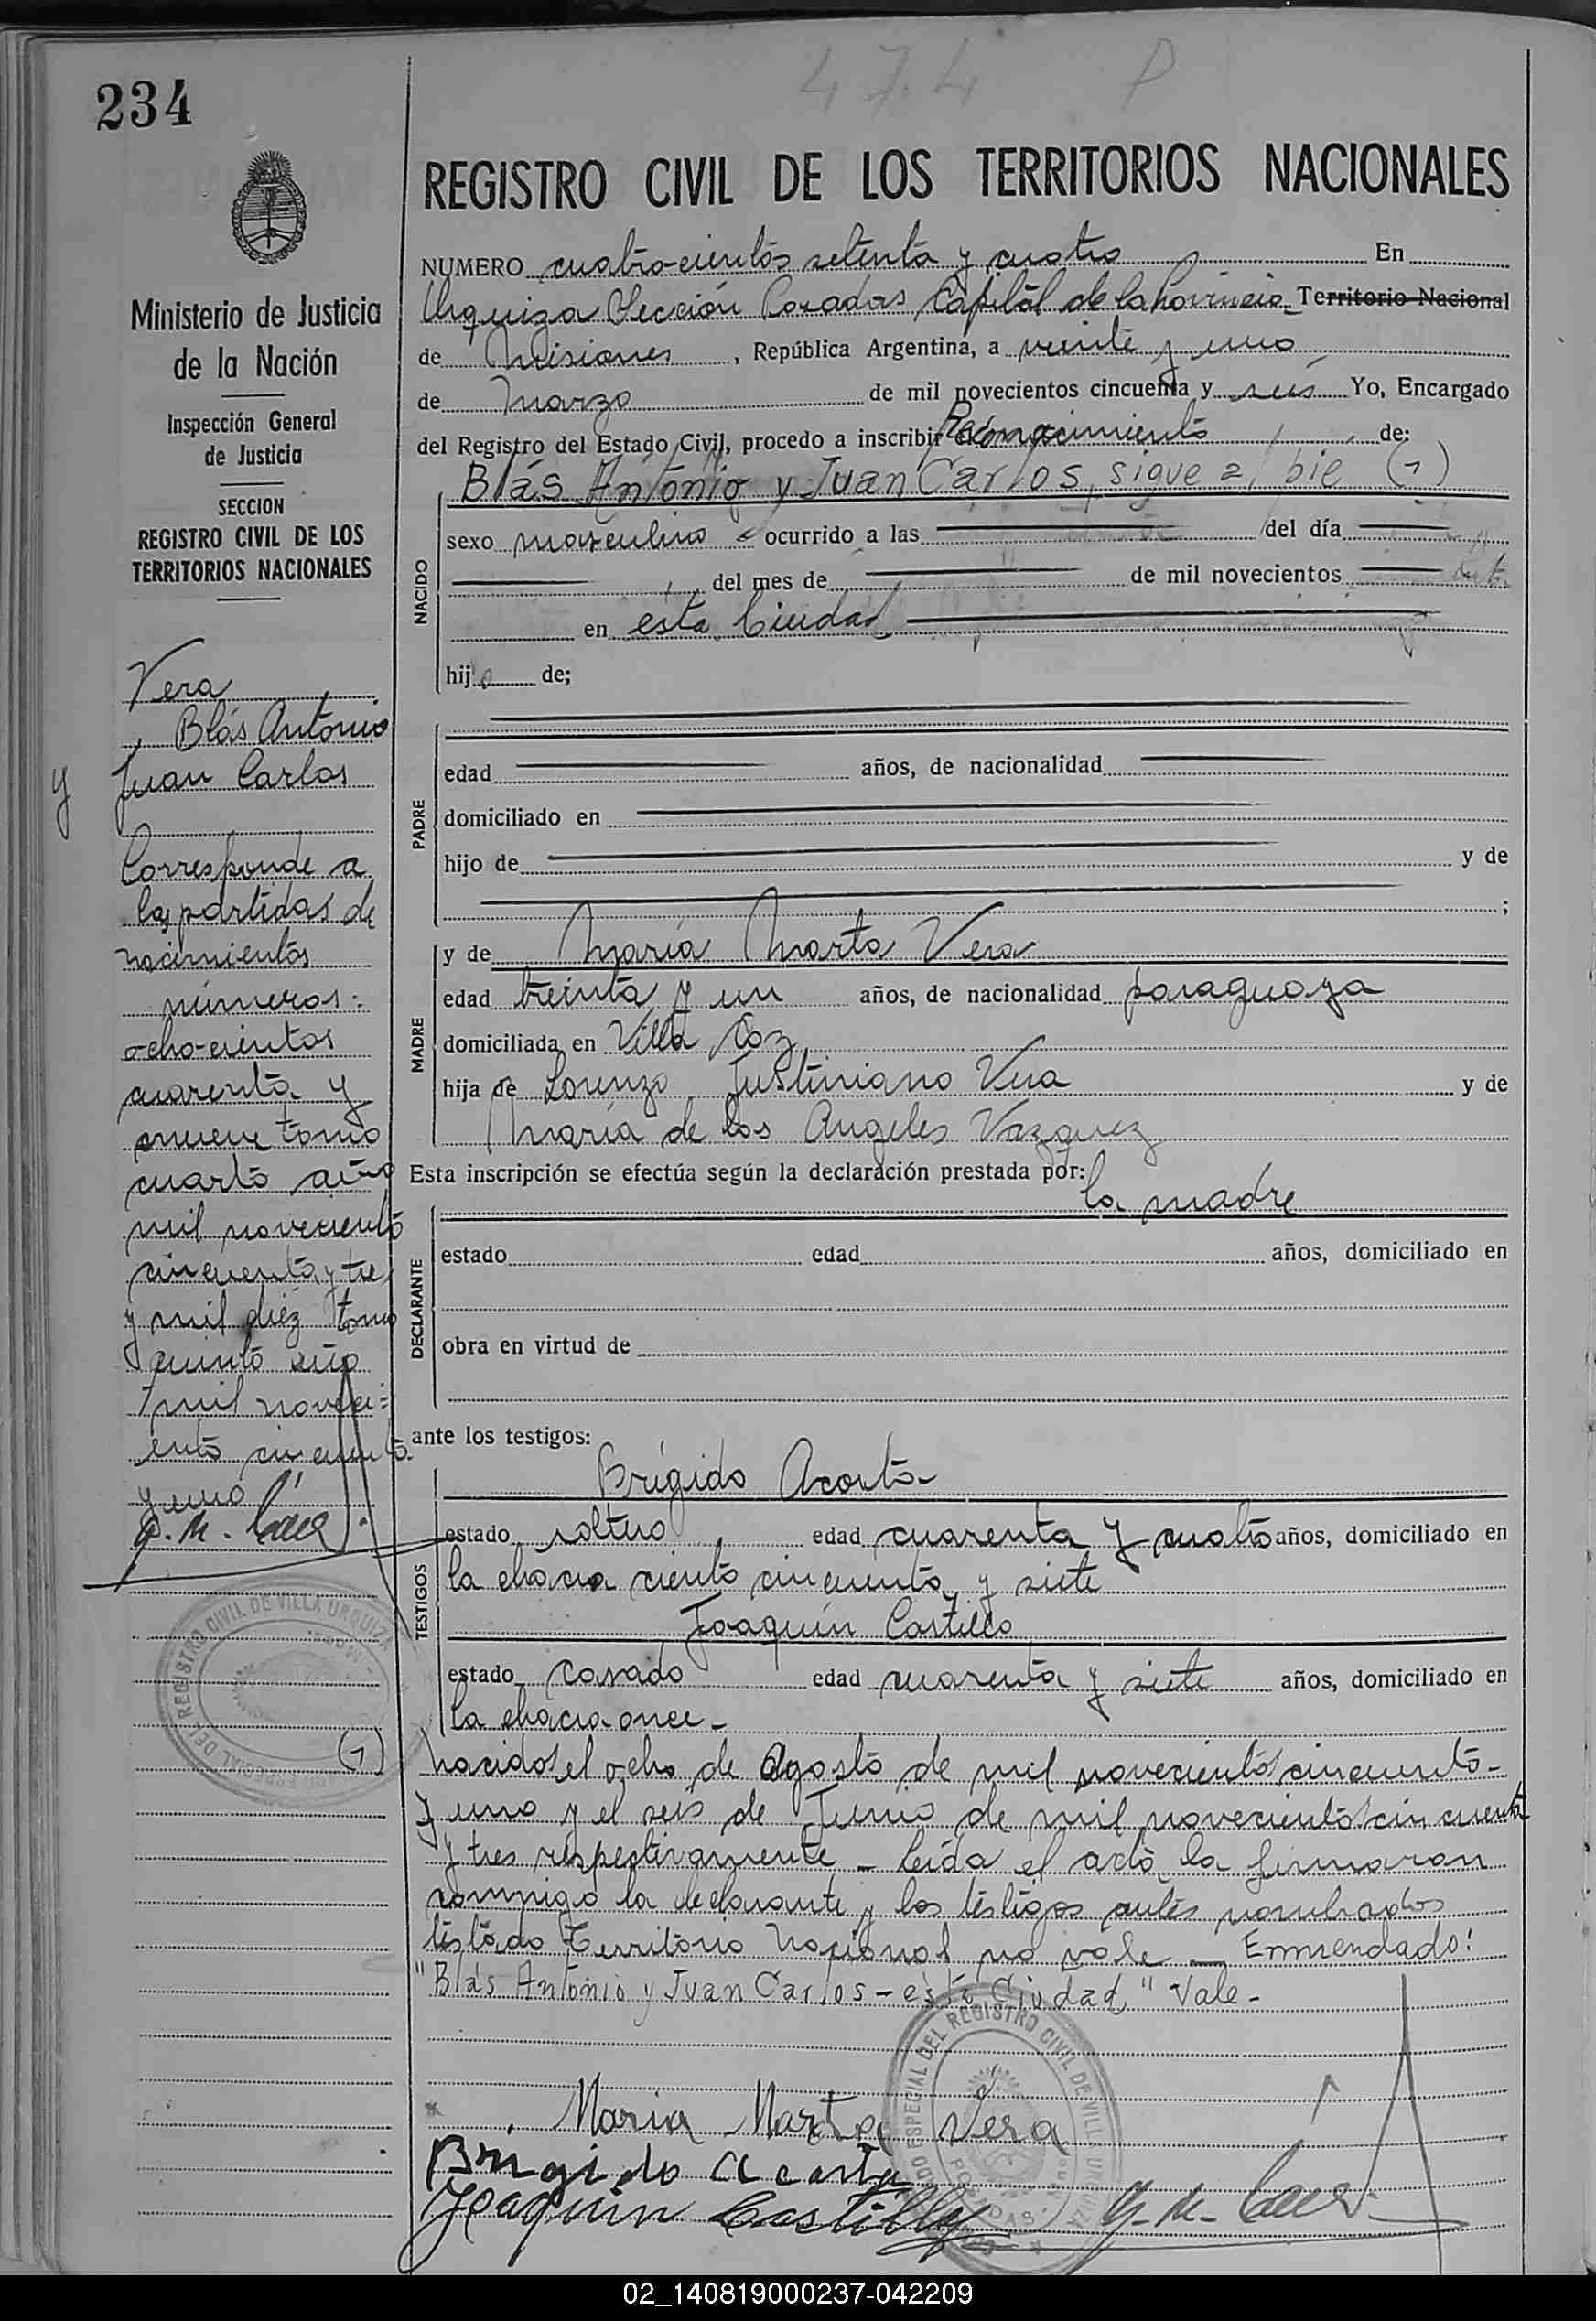 474 P
234
REGISTRO CIVIL DE LOS TERRITORIOS NACIONALES
Ministerio de Justicia
de la Nación
Inspección General
de Justicia
SECCION
REGISTRO CIVIL DE LOS
TERRITORIOS NACIONALES
Vera
Blás António
y Juan Carlos
Corresponde a
las partidas de
nacimientos
números:
ocho-cientos
cuarenta y
nueve tomo
cuarto año
mil noveciento
cincuenta y tre
y mil diéz tomo
quinto año
mil noveci=
ento cincuenta
y uno
NUMERO cuatro-cientos setenta y cuatro En
Urquiza Sección Posadas Capital de la Provincia Territorio Nacional
de Misiones, República Argentina, a veinte y uno
de Marzo de mil novecientos cincuenta y seis Yo, Encargado
del Registro del Estado Civil, procedo a inscribir el Reconocimiento de:
Blás António y Juan Carlos, sigue al pie (1)
NACIDO
sexo masculino ocurrido a las del día
del mes de de mil novecientos
en ésta Ciudad
hijo de;
PADRE
edad años, de nacionalidad
domiciliado en
hijo de y de
;
MADRE
y de María Marta Vera
edad treinta y un años, de nacionalidad paraguaya
domiciliada en Villa Coz
hija de Lorenzo Justiniano Vera y de
María de los Angeles Vazquez
Esta inscripción se efectúa según la declaración prestada por:
la madre
DECLARANTE
estado edad años, domiciliado en
obra en virtud de
ante los testigos:
TESTIGOS
Brígido Acosta
estado soltero edad cuarenta y cuatro años, domiciliado en
la chacra ciento cincuenta y siete
Joaquín Castillo
estado casado edad cuarenta y siete años, domiciliado en
la chacra once -
(1) nacidos el ocho de Agosto de mil novecientos cincuenta-
y uno y el seis de Junio de mil novecientos cincuenta
y tres respectivamente - Leída el acta la firmaron
conmigo la declarante y los testigos antes nombrados
testado Territorio Nacional no vale - Enmendado:
"Blás António y Juan Carlos - ésta Ciudad" Vale -
Maria Marta Vera
Brigido Acosta
Joaquin Castillo
02_140819000237-042209